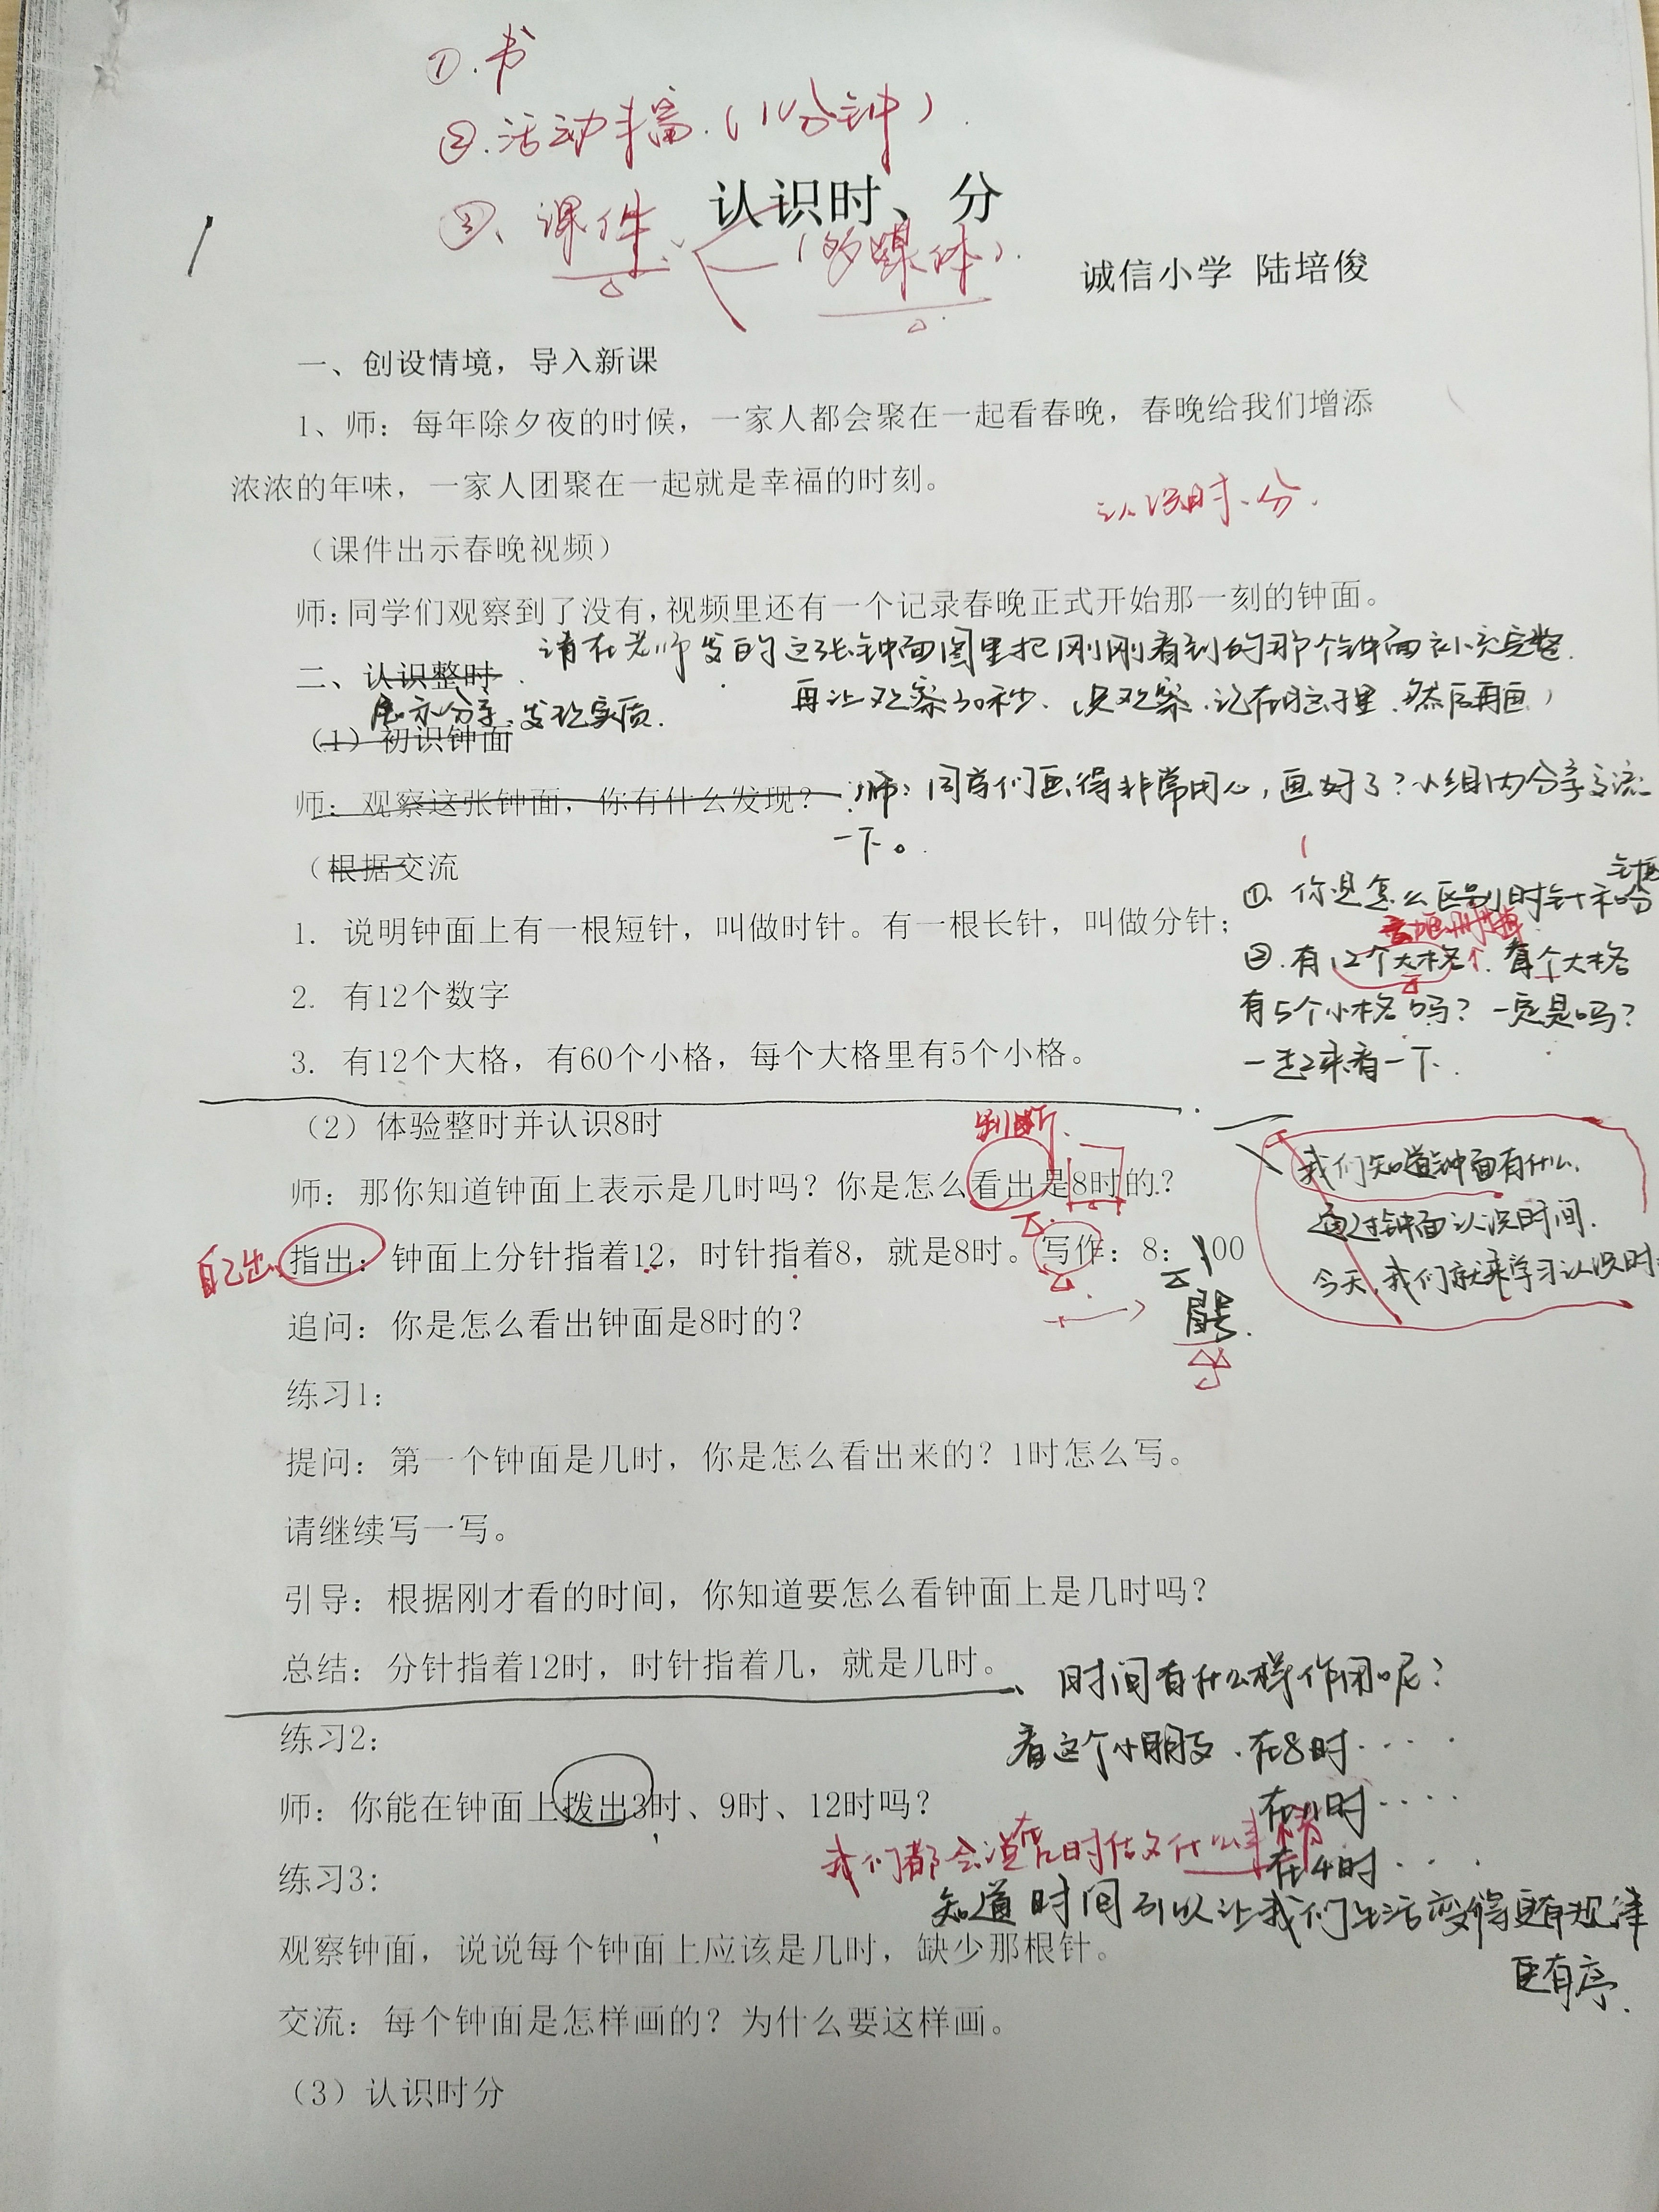 ①.书
②.活动丰富.(10分钟).
③、课件
认识时、分
(多媒体).
诚信小学 陆培俊
一、创设情境，导入新课
1、师：每年除夕夜的时候，一家人都会聚在一起看春晚，春晚给我们增添
浓浓的年味，一家人团聚在一起就是幸福的时刻。
认识时、分.
（课件出示春晚视频）
师：同学们观察到了没有，视频里还有一个记录春晚正式开始那一刻的钟面。
请在老师发的这张钟面图里把刚刚看到的那个钟面补充完整.
二、认识整时.
再让观察30秒、只观察.记在脑子里.然后再画)
展示分享、发现实质.
（1）初识钟面
师：观察这张钟面，你有什么发现？
师：同学们画得非常用心，画好了？小组内分享交流
一下。
（根据交流
①.你是怎么区别时针和分
1. 说明钟面上有一根短针，叫做时针。有一根长针，叫做分针；
②.有12个大格.每个大格
2. 有12个数字
有5个小格吗？一定是吗？
3. 有12个大格，有60个小格，每个大格里有5个小格。
一起来看一下.
（2）体验整时并认识8时
判断
我们知道钟面有什么.
师：那你知道钟面上表示是几时吗？你是怎么看出是8时的？
通过钟面认识时间.
自己出
指出：钟面上分针指着12，时针指着8，就是8时。写作：8：00
今天,我们就来学习认识时
追问：你是怎么看出钟面是8时的？
练习1：
提问：第一个钟面是几时，你是怎么看出来的？1时怎么写。
请继续写一写。
引导：根据刚才看的时间，你知道要怎么看钟面上是几时吗？
总结：分针指着12时，时针指着几，就是几时。
时间有什么样作用呢？
练习2：
看这个小朋友.在8时····
师：你能在钟面上拨出3时、9时、12时吗？
在11时····
练习3：
在4时···
知道时间可以让我们生活变得更有规律
观察钟面，说说每个钟面上应该是几时，缺少那根针。
更有序.
交流：每个钟面是怎样画的？为什么要这样画。
（3）认识时分